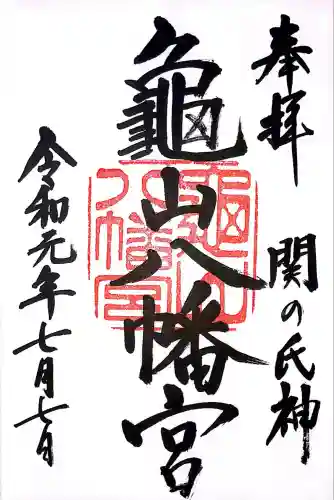 奉拝
関の氏神
龜山八幡宮
龜山八幡宮
令和元年七月七日